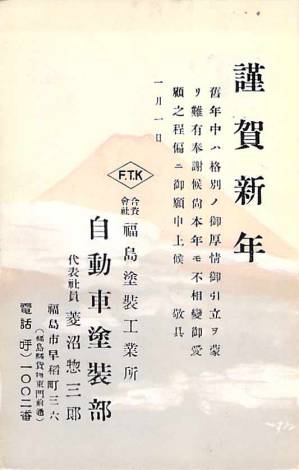 謹賀新年
舊年中ハ格別ノ御厚情御引立ヲ蒙
リ難有奉謝候尙本年モ不相變御愛
顧之程偏ニ御願申上候　敬具
一月一日
F.T.K
合資會社 福島塗裝工業所
自動車塗裝部
代表社員 菱沼惣三郎
福島市早稻町三六
(福島驛貨物東門前通)
電話(呼)一〇〇二番